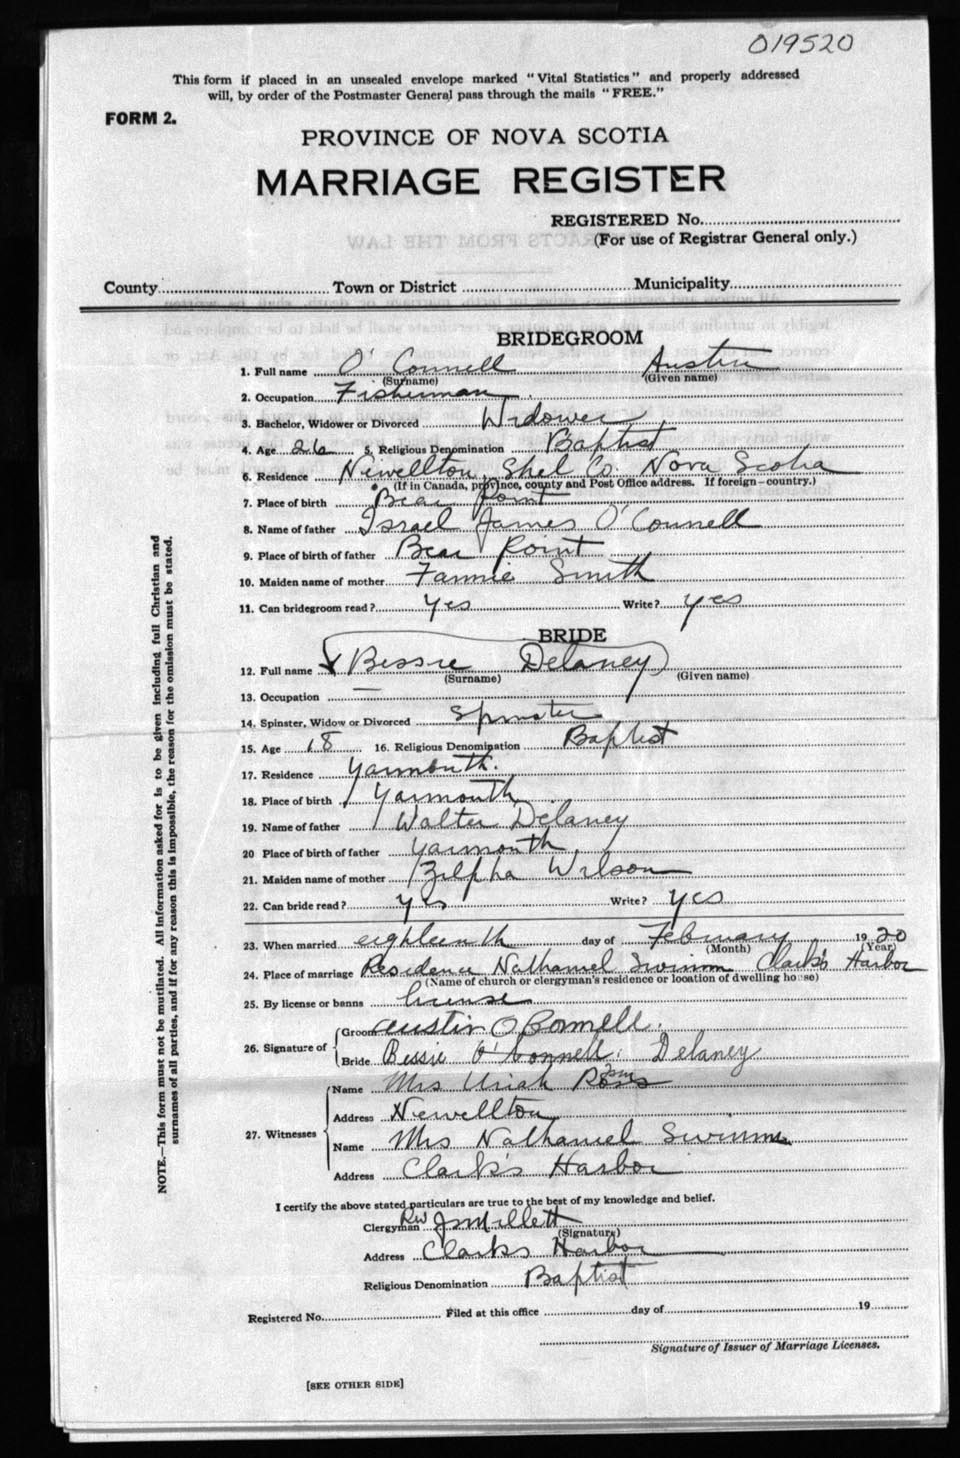 019520
This form if placed in an unsealed envelope marked "Vital Statistics" and properly addressed
will, by order of the Postmaster General pass through the mails "FREE."
FORM 2.
PROVINCE OF NOVA SCOTIA
MARRIAGE REGISTER
REGISTERED No.
(For use of Registrar General only.)
County Town or District Municipality
BRIDEGROOM
1. Full name O'Connell Austin
(Surname) (Given name)
2. Occupation Fisherman
3. Bachelor, Widower or Divorced Widower
4. Age 26 5. Religious Denomination Baptist
6. Residence Newellton, Shel Co. Nova Scotia
(If in Canada, province, county and Post Office address. If foreign—country.)
7. Place of birth Bear Point
8. Name of father Israel James O'Connell
9. Place of birth of father Bear Point
10. Maiden name of mother Fannie Smith
11. Can bridegroom read? Yes Write? yes
BRIDE
12. Full name Bessie Delaney
(Surname) (Given name)
13. Occupation —
14. Spinster, Widow or Divorced Spinster
15. Age 18 16. Religious Denomination Baptist
17. Residence Yarmouth.
18. Place of birth Yarmouth
19. Name of father Walter Delaney
20 Place of birth of father Yarmouth
21. Maiden name of mother Zilpha Wilson
22. Can bride read? yes Write? yes
23. When married eighteenth day of February 1920
(Month) (Year)
24. Place of marriage Residence Nathaniel Swimm Clark's Harbor
(Name of church or clergyman's residence or location of dwelling house)
25. By license or banns license
26. Signature of Groom Austin O Connell.
Bride Bessie O'Connell. Delaney
27. Witnesses Name Mrs Uriah
Address Newellton
Name Mrs Nathaniel Swimm
Address Clark's Harbor
I certify the above stated particulars are true to the best of my knowledge and belief.
Clergyman Rev J Millett
(Signature)
Address Clarks Harbor
Religious Denomination Baptist
Registered No. Filed at this office day of 19
Signature of Issuer of Marriage Licenses.
[SEE OTHER SIDE]
NOTE.—This form must not be mutilated. All information asked for is to be given including full Christian and
surnames of all parties, and if for any reason this is impossible, the reason for the omission must be stated.